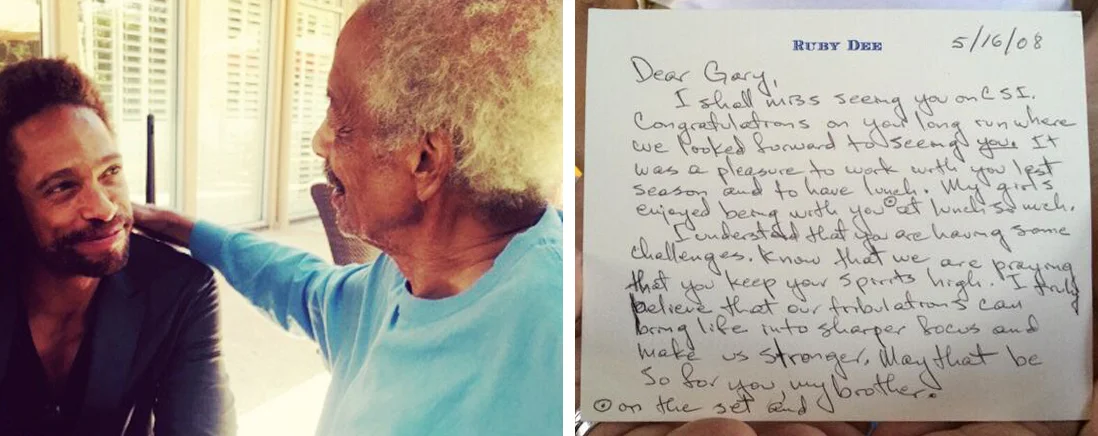 RUBY DEE
5/16/08
Dear Gary,
I shall miss seeing you on CSI.
Congratulations on your long run where
we looked forward to seeing you. It
was a pleasure to work with you last
season and to have lunch. My girls
enjoyed being with you ⊙ at lunch so much.
I understand that you are having some
challenges. Know that we are praying
that you keep your spirits high. I truly
believe that our tribulations can
bring life into sharper focus and
make us stronger. May that be
so for you, my brother.
⊙ on the set and